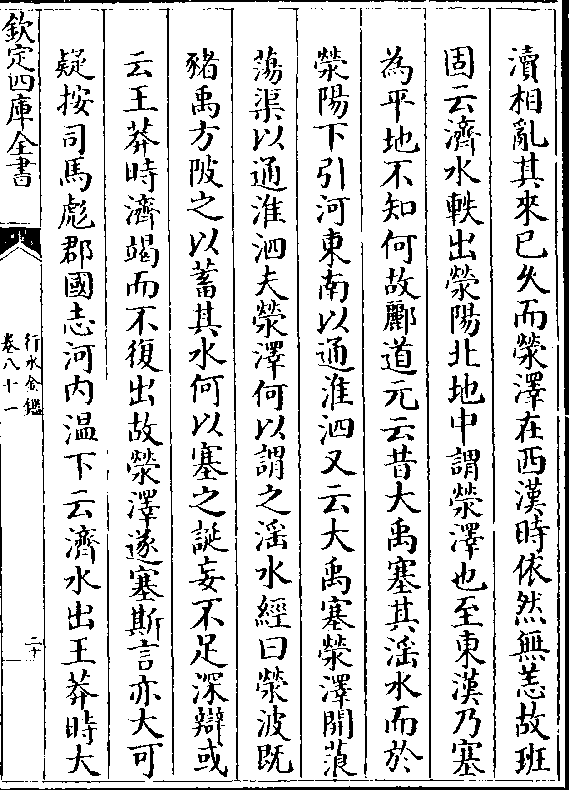 瀆相亂其來已久而滎澤在西漢時依然無恙故班
固云濟水軼出滎陽北地中謂滎澤也至東漢乃塞
為平地不知何故酈道元云昔大禹塞其滛水而於
滎陽下引河東南以通淮泗又云大禹塞滎澤開蒗
蕩渠以通淮泗夫滎澤何以謂之滛水經曰滎波既
豬禹方陂之以蓄其水何以塞之誕妄不足深辯或
云王莽時濟竭而不復出故滎澤遂塞斯言亦大可
疑按司馬彪郡國志河内温下云濟水出王莽時大
欽定四庫全書
行水金鑑
卷八十一
二十